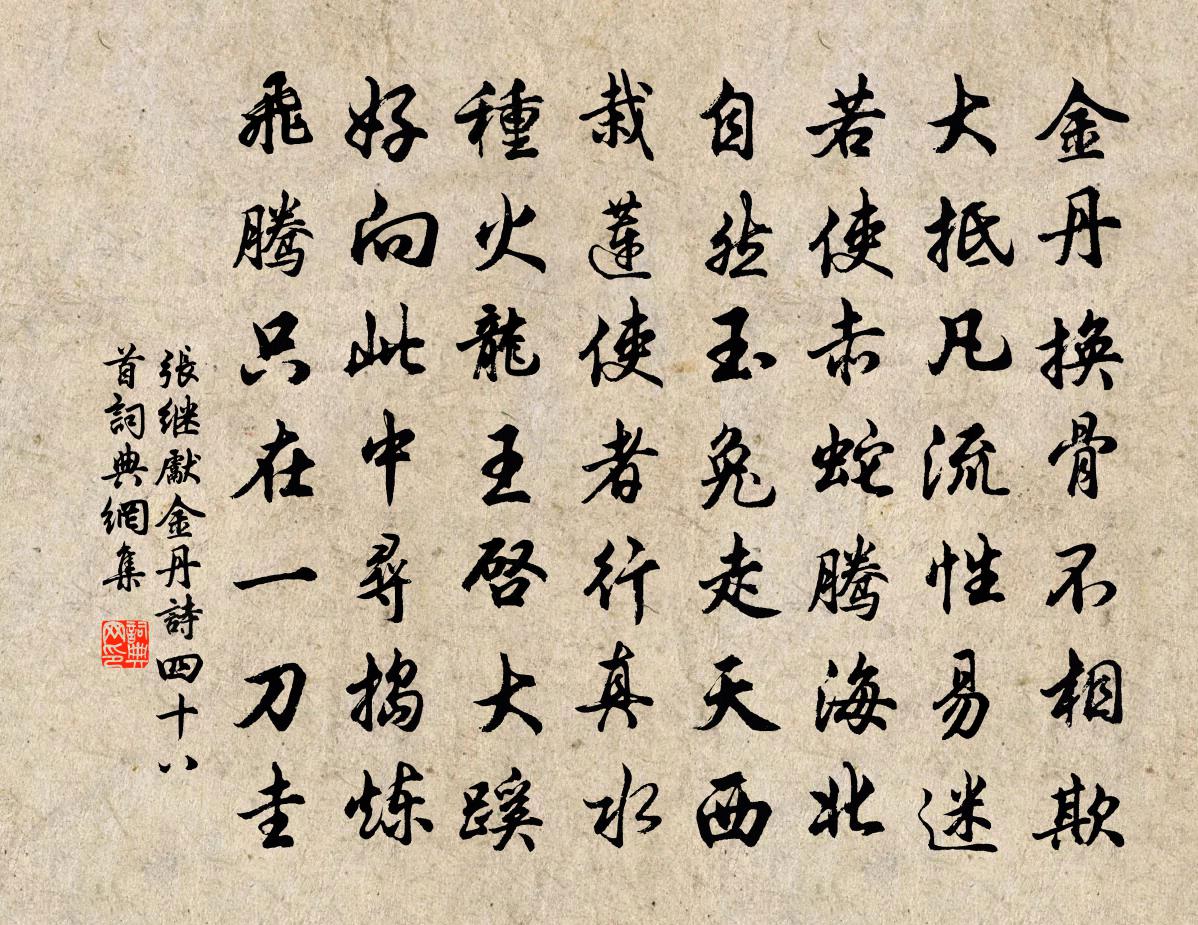 金丹換骨不相欺
大抵凡流性易迷
若使赤蛇騰海北
自然玉兔走天西
栽蓮使者行真水
種火龍王啓大蹊
好向此中尋搗煉
飛騰只在一刀圭
張継獻金丹詩四十八
首詞典網集
詞典
网印